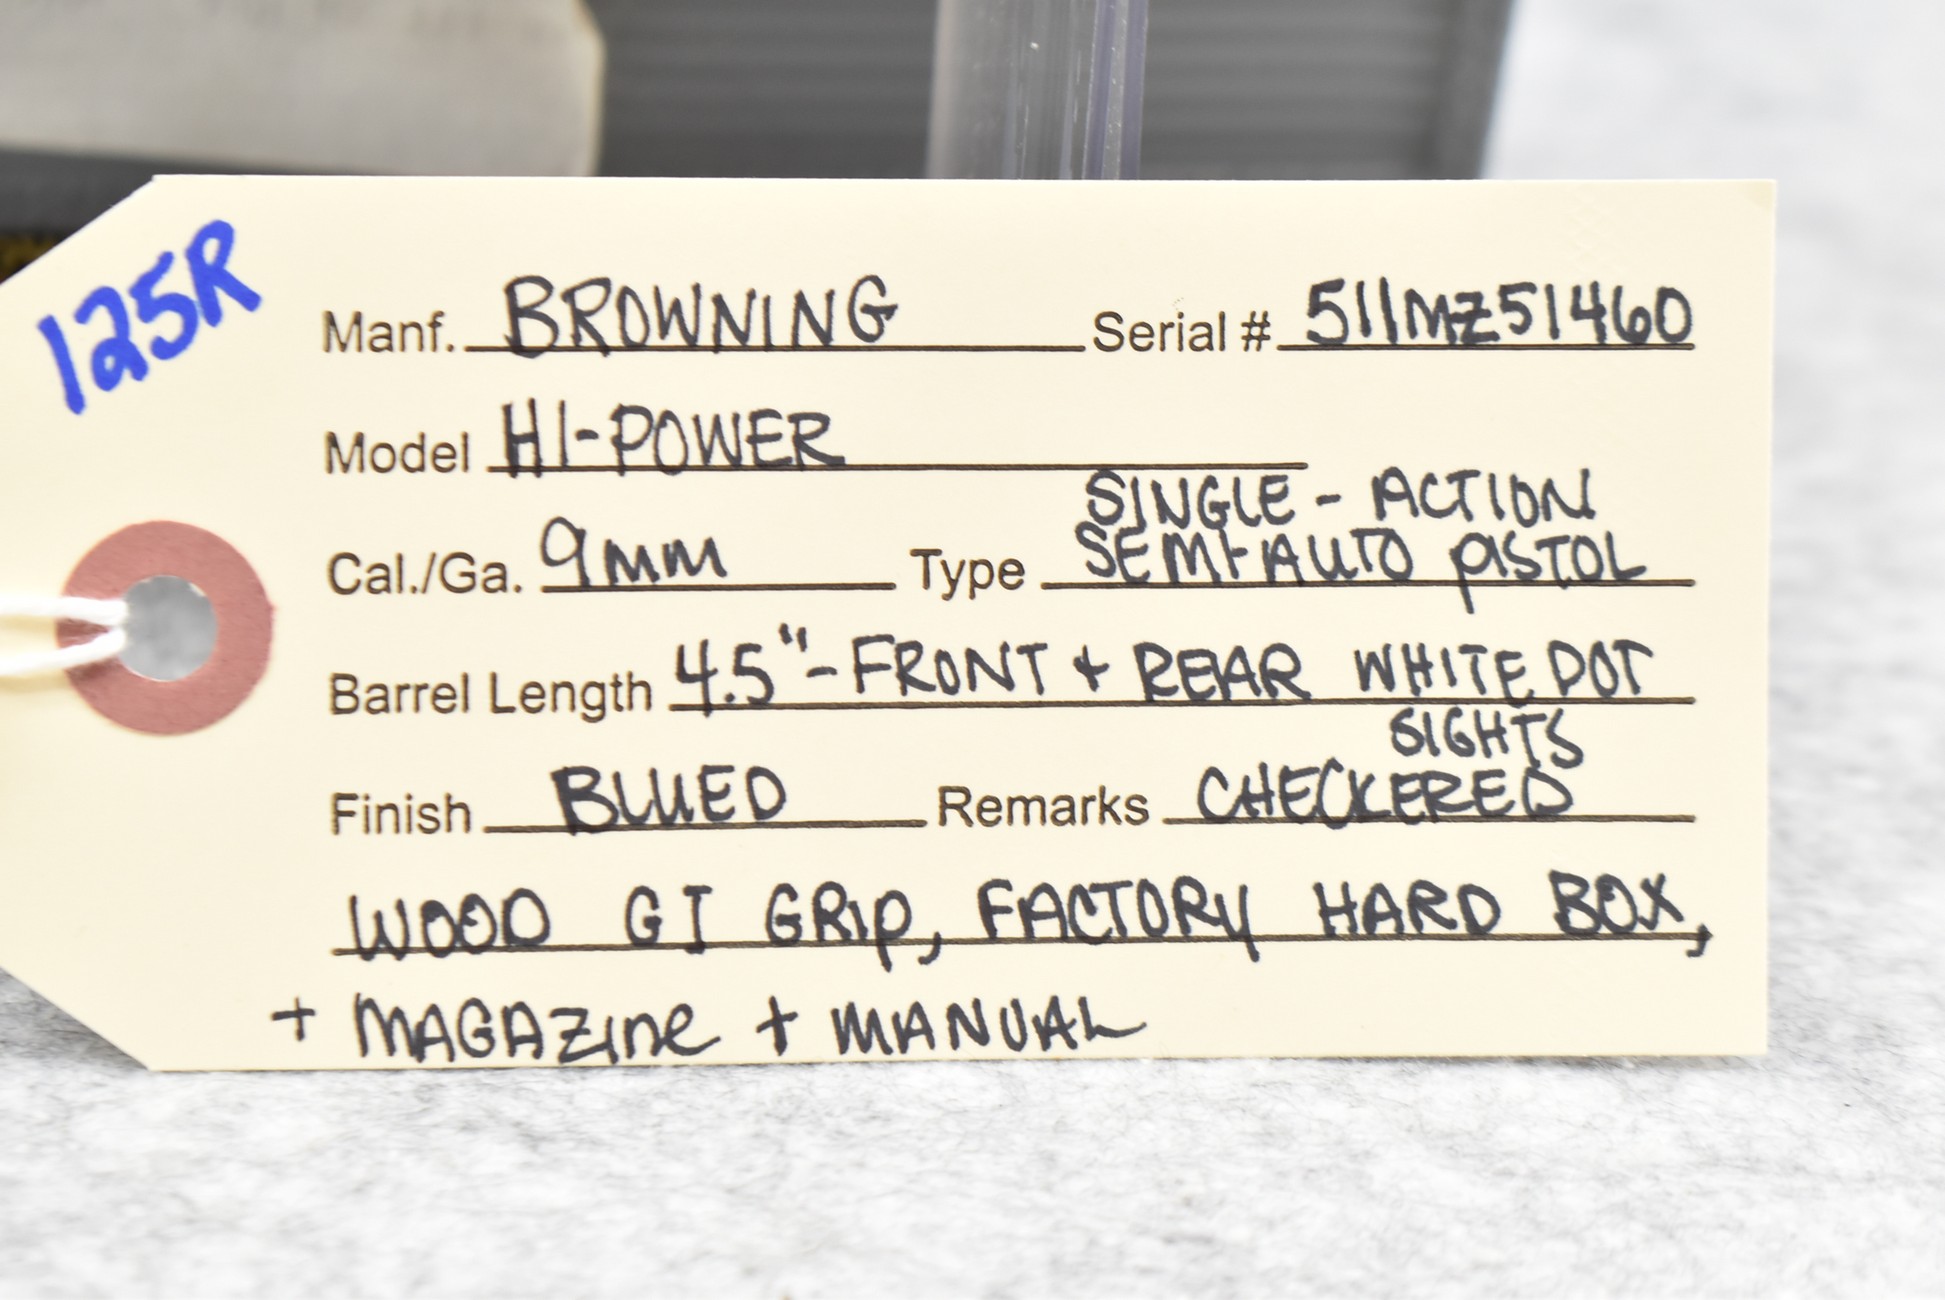 125R
Manf. BROWNING Serial # 511MZ51460
Model HI-POWER
SINGLE - ACTION
Cal./Ga. 9mm Type SEMI-AUTO PISTOL
Barrel Length 4.5"-FRONT + REAR WHITE DOT
SIGHTS
Finish BLUED Remarks CHECKERED
WOOD GI GRIP, FACTORY HARD BOX,
+ MAGAZINE + MANUAL